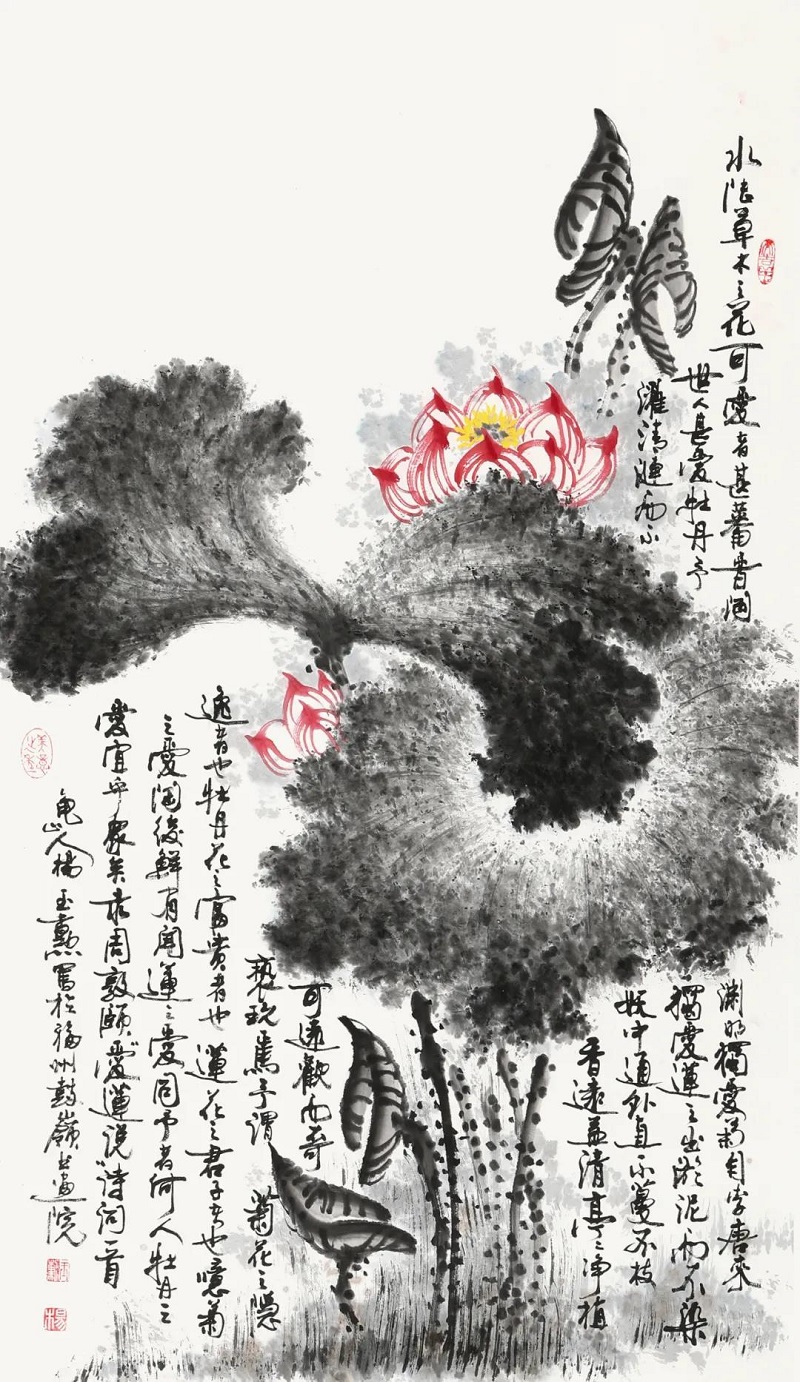 水陸草木之花可愛者甚蕃晋陶
渊明獨愛菊自李唐來
世人甚愛牡丹予
獨愛蓮之出淤泥而不染
濯清漣而不
妖中通外直不蔓不枝
香遠益清亭亭净植
可遠觀而不可
褻玩焉予謂
菊花之隱
逸者也牡丹花之富貴者也蓮花之君子者也噫菊
之愛陶後鮮有聞蓮之愛同予者何人牡丹之
愛宜乎眾矣录周敦頤愛蓮説詩词一首
龜山人楊玉勲寫於福州鼓嶺书畫院
楊